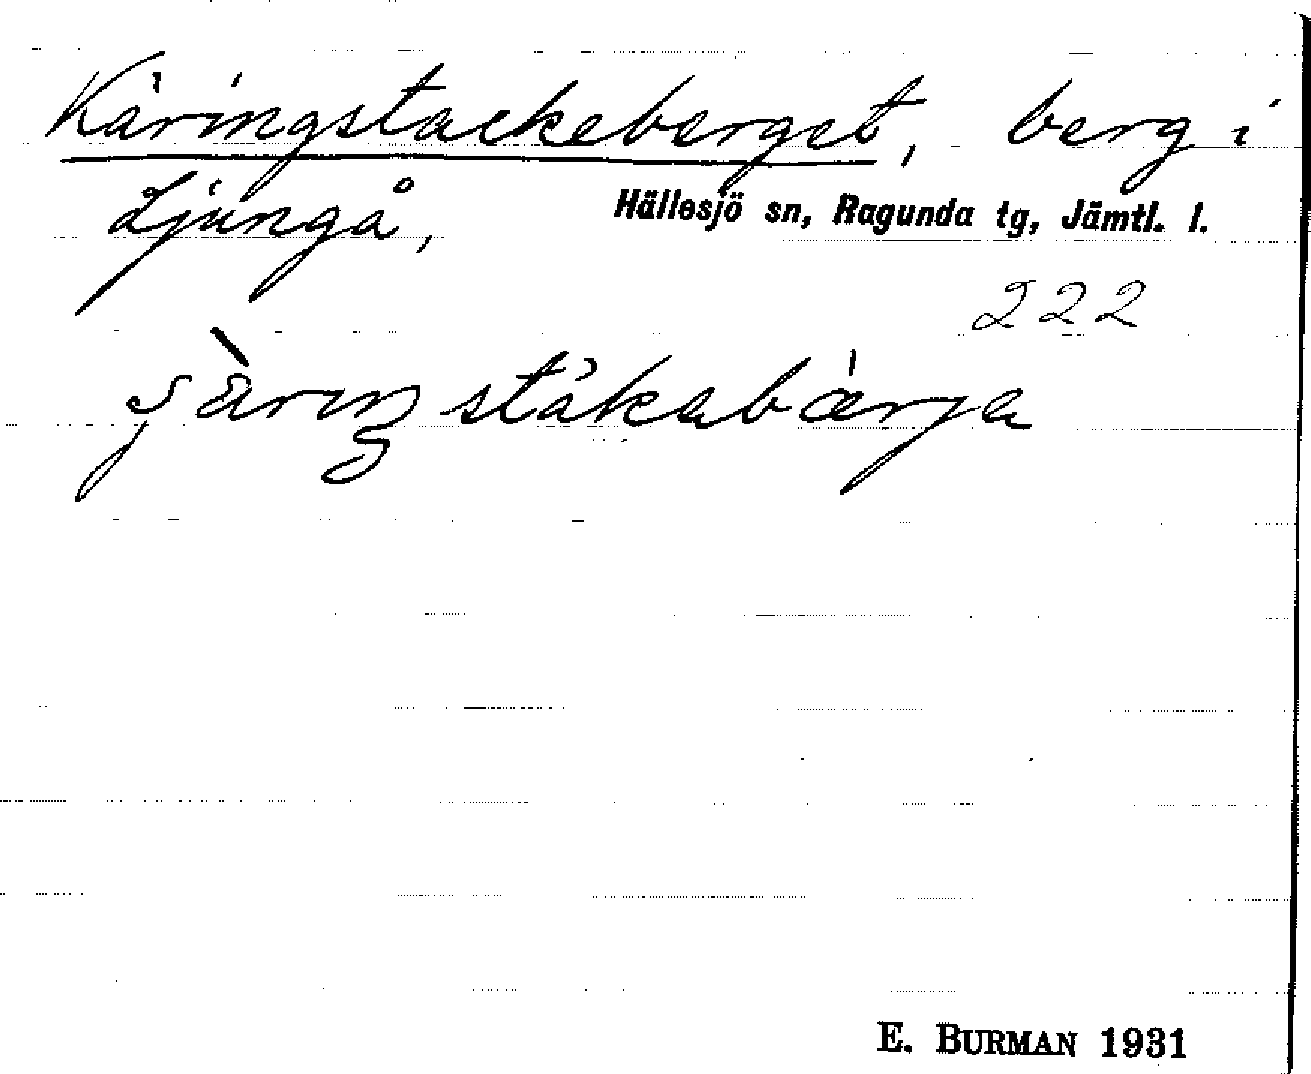 Käringstackeberget, berg i
Ljungå, Hällesjö sn, Ragunda tg, Jämtl. l.
222
E. BURMAN 1931